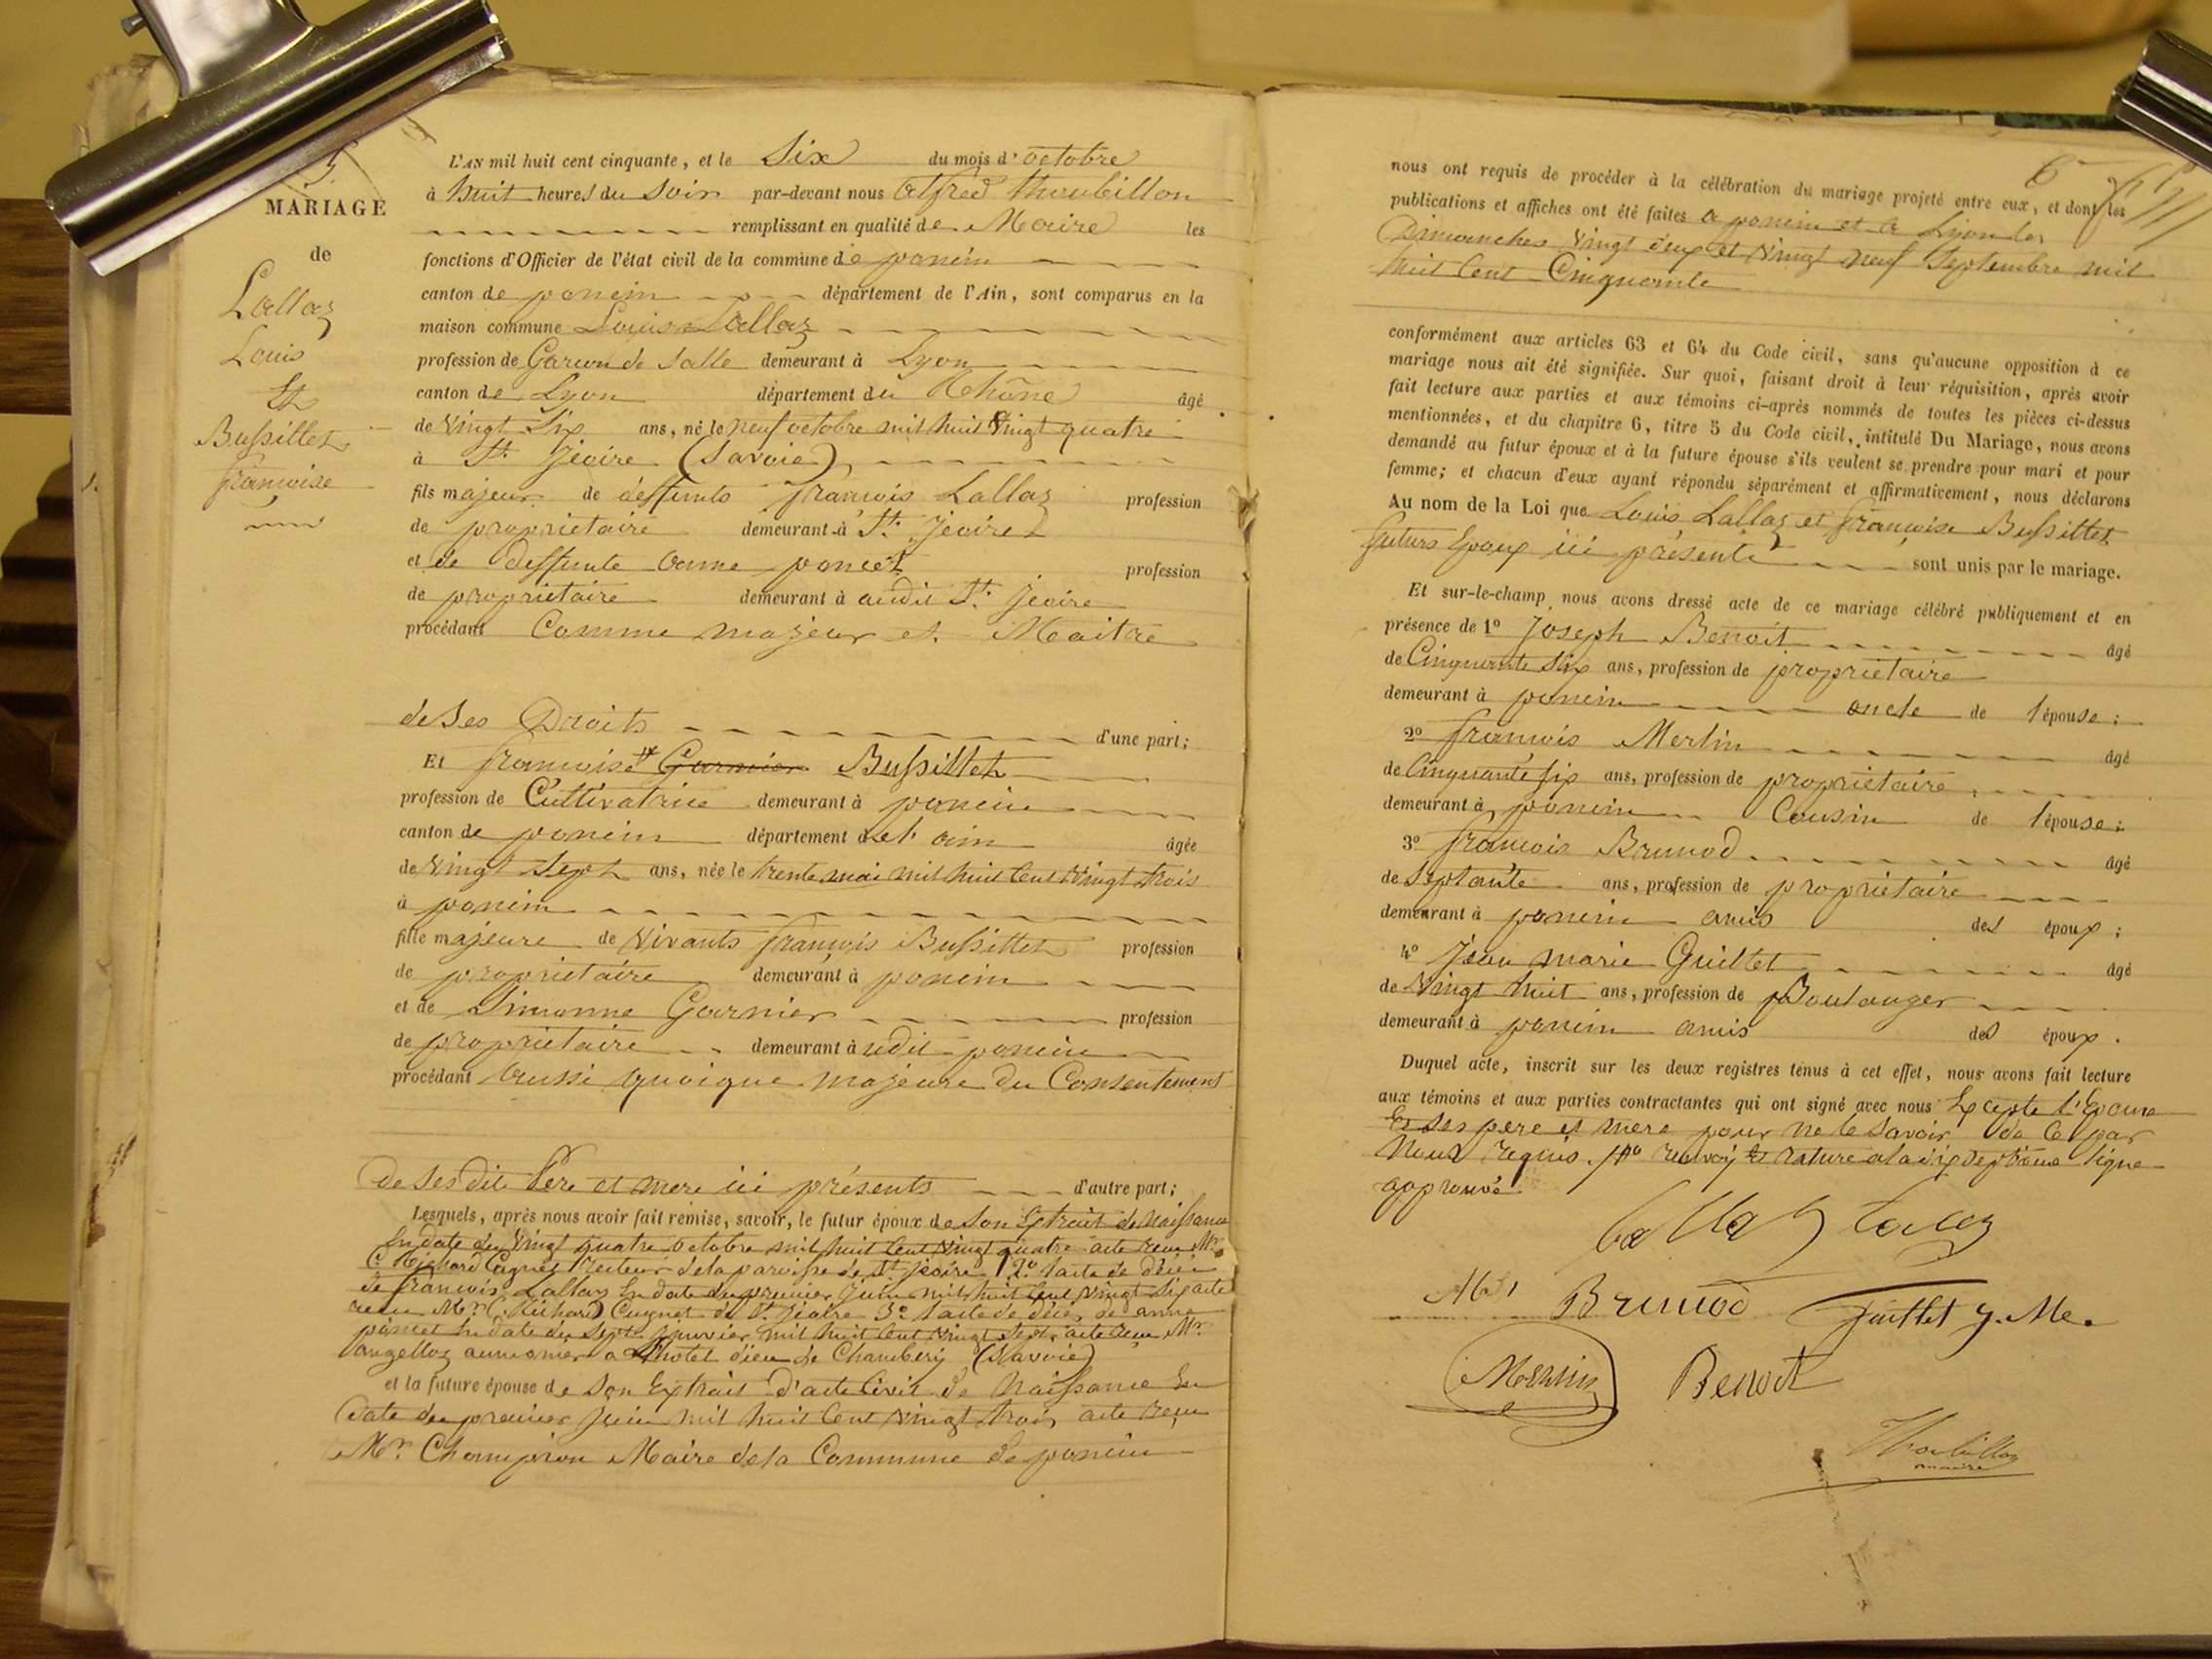 5.
MARIAGE
de
Lallaz
Louis
Et
Bussillet
françoise
L'AN mil huit cent cinquante, et le Six du mois d'octobre
à huit heures du Soir par-devant nous Alfred Thoubillon
remplissant en qualité de Maire les
fonctions d'Officier de l'état civil de la commune de poncin
canton de poncin département de l'Ain, sont comparus en la
maison commune Louis Lallaz
profession de Garcon de Salle demeurant à Lyon
canton de Lyon département du Rhône âgé
de Vingt Six ans, né le neuf octobre mil huit Vingt quatre
à St. Jeoire (Savoie)
fils majeur de deffunts françois Lallaz profession
de propriétaire demeurant à St. Jeoire
et de deffunte anne poncet profession
de propriétaire demeurant à audit St. Jeoire
procédant Comme majeur et Maitre
de Ses Droits d'une part;
Et françoise Garnier Bussillet
profession de Cultivatrice demeurant à poncin
canton de poncin département de l'ain âgée
de Vingt Sept ans, née le trente mai mil huit Cent Vingt trois
à poncin
fille majeure de Vivants françois Bussillet profession
de propriétaire demeurant à poncin
et de Simonne Garnier profession
de propriétaire demeurant à udit poncin
procédant aussi quoique majeure du Consentement
de Ses dits Père et mere ici présents d'autre part;
Lesquels, après nous avoir fait remise, savoir, le futur époux de Son Extrait de Naissance
En date du Vingt quatre octobre mil huit Cent Vingt quatre acte recu Mr.
C. Richard Cugnet recteur de la paroisse de St. jeoire 2° l'acte de décès
de françois Lallaz En date du premier Juin mil huit Cent Vingt Six acte
recu Mr. C. Richard Cugnet de St. Jeoire 3° l'acte de décès de anne
poncet En date du Sept janvier mil huit Cent Vingt Sept acte recu Mr.
aumonier a L'hotel dieu de Chambery (Savoie)
et la future épouse de Son Extrait d'acte Civil de Naissance En
Date du premier Juin mil huit Cent Vingt trois acte recu
Mr. Champion Maire de la Commune de poncin
6
nous ont requis de procéder à la célébration du mariage projeté entre eux, et dont les
publications et affiches ont été faites a poncin et a Lyon les
Dimanches Vingt deux et Vingt neuf Septembre mil
huit Cent Cinquante
conformément aux articles 63 et 64 du Code civil, sans qu'aucune opposition à ce
mariage nous ait été signifiée. Sur quoi, faisant droit à leur réquisition, après avoir
fait lecture aux parties et aux témoins ci-après nommés de toutes les pièces ci-dessus
mentionnées, et du chapitre 6, titre 5 du Code civil, intitulé Du Mariage, nous avons
demandé au futur époux et à la future épouse s'ils veulent se prendre pour mari et pour
femme; et chacun d'eux ayant répondu séparément et affirmativement, nous déclarons
Au nom de la Loi que Louis Lallaz et françoise Bussillet
futurs Epoux ici présents sont unis par le mariage.
Et sur-le-champ nous avons dressé acte de ce mariage célébré publiquement et en
présence de 1° Joseph Benoit âgé
de Cinquante Six ans, profession de propriétaire
demeurant à poncin oncle de l'épouse;
2° françois Merlin âgé
de Cinquante Six ans, profession de propriétaire
demeurant à poncin Cousin de l'épouse;
3° françois Brunod âgé
de Septante ans, profession de propriétaire
demeurant à poncin amis des époux;
4° Jean marie Guillet âgé
de Vingt huit ans, profession de Boulanger
demeurant à poncin amis des époux.
Duquel acte, inscrit sur les deux registres tenus à cet effet, nous avons fait lecture
aux témoins et aux parties contractantes qui ont signé avec nous Excepté l'Epouse
Et Ses pere et mere pour ne le Savoir de Ce par
Nous requis. renvoi et rature a la dix Septième ligne
approuvé
Brunod Guillet J. Me.
Merlin Benoit
Thoubillon
maire